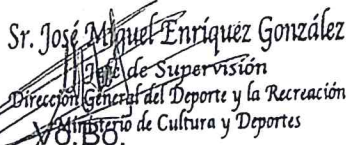 Sr. José Miguel Enríquez González
Jefe de Supervisión
Dirección General del Deporte y la Recreación
Ministerio de Cultura y Deportes
Vo.Bo.